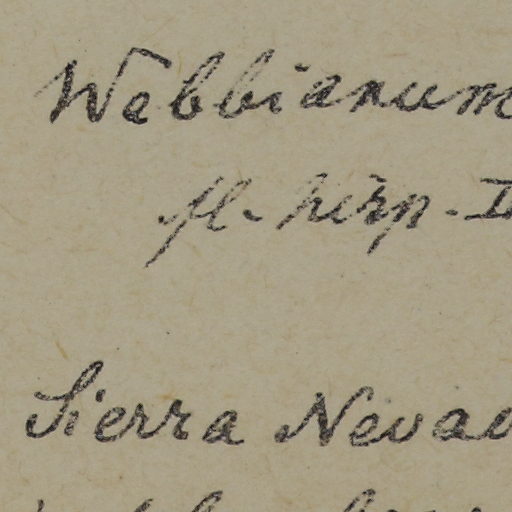 Webbianum
fl. hisp. II
Sierra Nevad